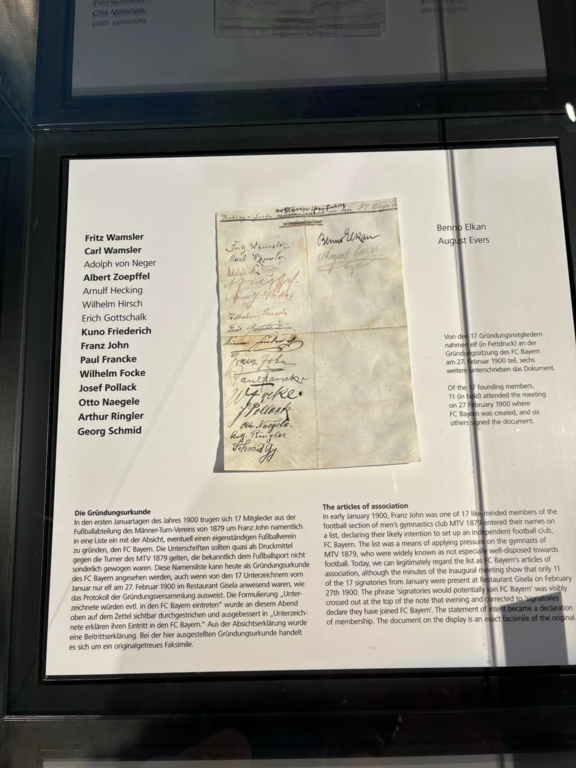 Fritz Wamsler
Carl Wamsler
Adolph von Neger
Albert Zoepffel
Arnulf Hecking
Wilhelm Hirsch
Erich Gottschalk
Kuno Friederich
Franz John
Paul Francke
Wilhelm Focke
Josef Pollack
Otto Naegele
Arthur Ringler
Georg Schmid
Fritz Wamsler
Carl Wamsler
Franz John
Paul Francke
W Focke.
J Pollack
Otto Naegele.
Benno Elkan
August Evers
Benno Elkan
August Evers
Von den 17 Gründungsmitgliedern
nahmen elf (in Fettdruck) an der
Gründungssitzung des FC Bayern
am 27. Februar 1900 teil, sechs
weitere unterschrieben das Dokument.
Of the 17 founding members,
11 (in bold) attended the meeting
on 27 February 1900 where
FC Bayern was created, and six
others signed the document.
Die Gründungsurkunde
In den ersten Januartagen des Jahres 1900 trugen sich 17 Mitglieder aus der
Fußballabteilung des Männer-Turn-Vereins von 1879 um Franz John namentlich
in eine Liste ein mit der Absicht, eventuell einen eigenständigen Fußballverein
zu gründen, den FC Bayern. Die Unterschriften sollten quasi als Druckmittel
gegen die Turner des MTV 1879 gelten, die bekanntlich dem Fußballsport nicht
sonderlich gewogen waren. Diese Namensliste kann heute als Gründungsurkunde
des FC Bayern angesehen werden, auch wenn von den 17 Unterzeichnern vom
Januar nur elf am 27. Februar 1900 im Restaurant Gisela anwesend waren, wie
das Protokoll der Gründungsversammlung ausweist. Die Formulierung „Unter-
zeichnete würden evtl. in den FC Bayern eintreten“ wurde an diesem Abend
oben auf dem Zettel sichtbar durchgestrichen und ausgebessert in „Unterzeich-
nete erklären ihren Eintritt in den FC Bayern.“ Aus der Absichtserklärung wurde
eine Beitrittserklärung. Bei der hier ausgestellten Gründungsurkunde handelt
es sich um ein originalgetreues Faksimile.
The articles of association
In early January 1900, Franz John was one of 17 like-minded members of the
football section of men's gymnastics club MTV 1879 entered their names on
a list, declaring their likely intention to set up an independent football club,
FC Bayern. The list was a means of applying pressure on the gymnasts of
MTV 1879, who were widely known as not especially well-disposed towards
football. Today, we can legitimately regard the list as FC Bayern's articles of
association, although the minutes of the inaugural meeting show that only 11
of the 17 signatories from January were present at Restaurant Gisela on February
27th 1900. The phrase 'signatories would potentially join FC Bayern' was visibly
crossed out at the top of the note that evening and corrected to 'signatories
declare they have joined FC Bayern'. The statement of intent became a declaration
of membership. The document on the display is an exact facsimile of the original.